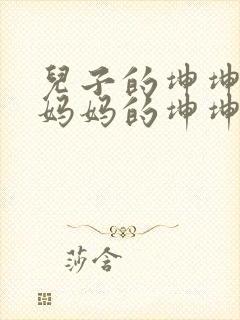 兒子的坤坤
妈妈的坤坤
莎含